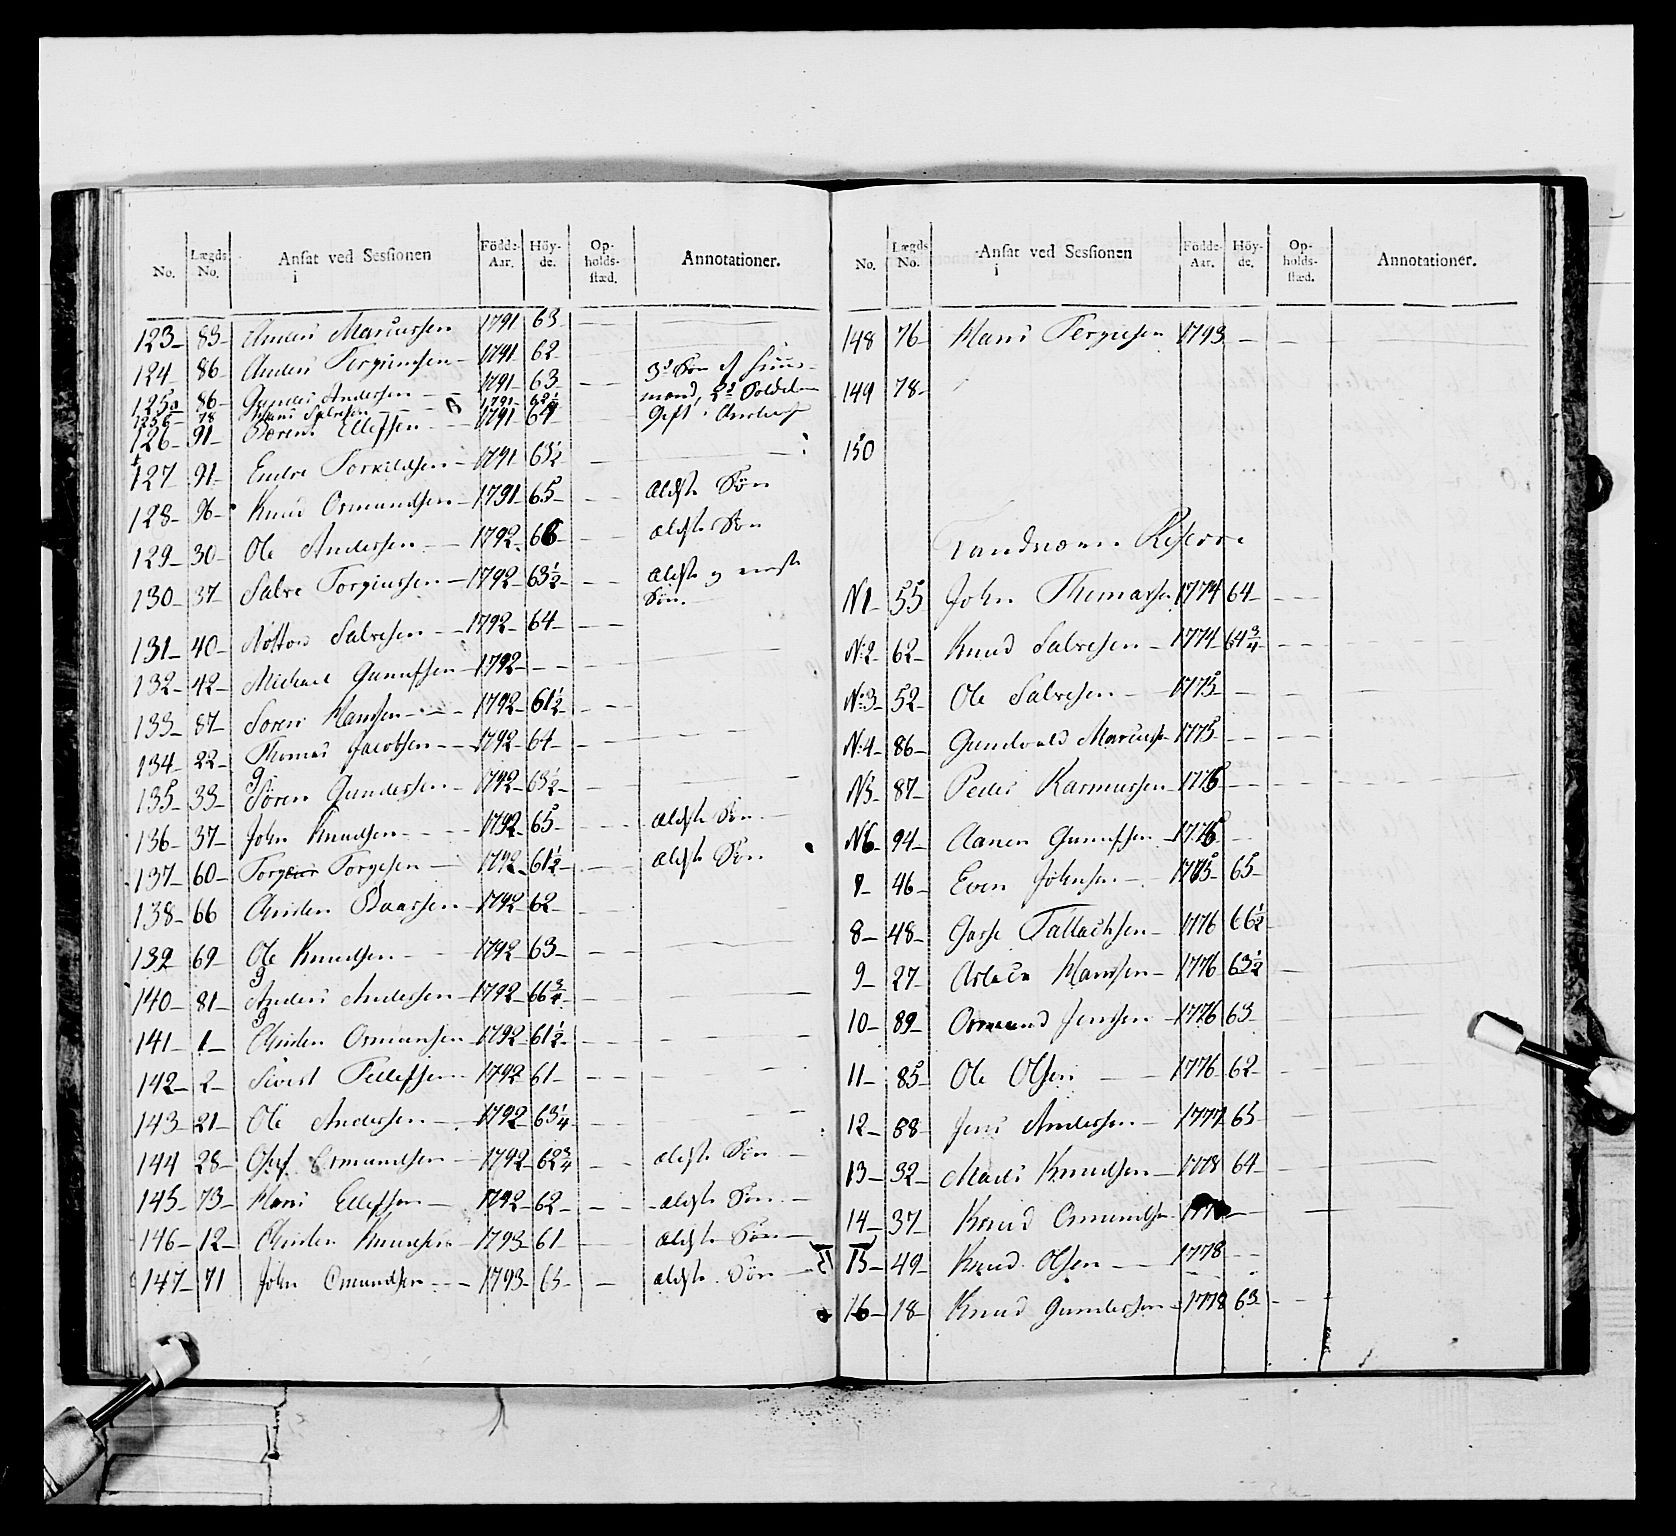 No. Lægds No. Ansat ved Sessionen i Födde-Aar. Höy-de. Op-holds-stæd. Annotationer.
123 83 Anders Mariussen 1791 63
124 86 Anders Torgiussen 1791 62
125a 86 Gunder Andersen 1791 63 3de Søn af
125b 78 Hans Salvesen 1791
126 91 Berent Ellefsen 1791 64 Gift
127 91 Endre Torkildsen 1791 63½
128 96 Knud Osmundsen 1791 65 Ældste Søn
129 30 Ole Andersen 1792 66 Ældste Søn
130 37 Salve Torgiussen 1792 63½ Ældste og eneste
Søn.
131 40 Salvesen 1792 64
132 42 Michael Gunufsen 1792
133 87 Søren Hansen 1792 61½
134 22 Thomas Jacobsen 1792 64
135 33 Søren Gundersen 1792 63½
136 37 John Knudsen 1792 65 Ældste Søn
137 60 Torgeir Torgesen 1792 61½ Ældste Søn
138 66 Christen Baassen 1792 62
139 69 Ole Knudsen 1792 63
140 81 Anders Andersen 1792 66¾
141 1 Christen Osmunsen 1792 61½
142 2 Sivert Tellefsen 1792 61
143 21 Ole Andersen 1792 63¼
144 28 Osmundsen 1792 62¾ Ældste Søn
145 73 Hans Ellefsen 1792 62 Ældste Søn
146 12 Christen Knudsen 1793 61 Ældste Søn
147 71 John Osmundsen 1793 65 Ældste Søn
No. Lægds No. Ansat ved Sessionen i Födde-Aar. Höy-de. Op-holds-stæd. Annotationer.
148 76 Hans Tergiesen 1793
149 78
150
Landværns Reserve
N1 55 John Thomassen 1774 64
N:2 62 Knud Salvesen 1774 64¾
N:3 52 Ole Salvesen 1775
N:4 86 Gundvald Mariussen 1775
N5 87 Peder Rasmussen 1775
N6 94 Aanen Gunufsen 1775
7 46 Even Johnsen 1775 65
8 48 Tallachsen 1776 66½
9 27 Aslach Hansen 1776 63½
10 89 Osmund Jensen 1776 63
11 85 Ole Olsen 1776 62
12 88 Jens Andersen 1777 65
13 32 Mads Knudsen 1778 64
14 37 Knud Osmundsen
15 49 Knud Olsen 1778
16 18 Knud Gundersen 1778 63